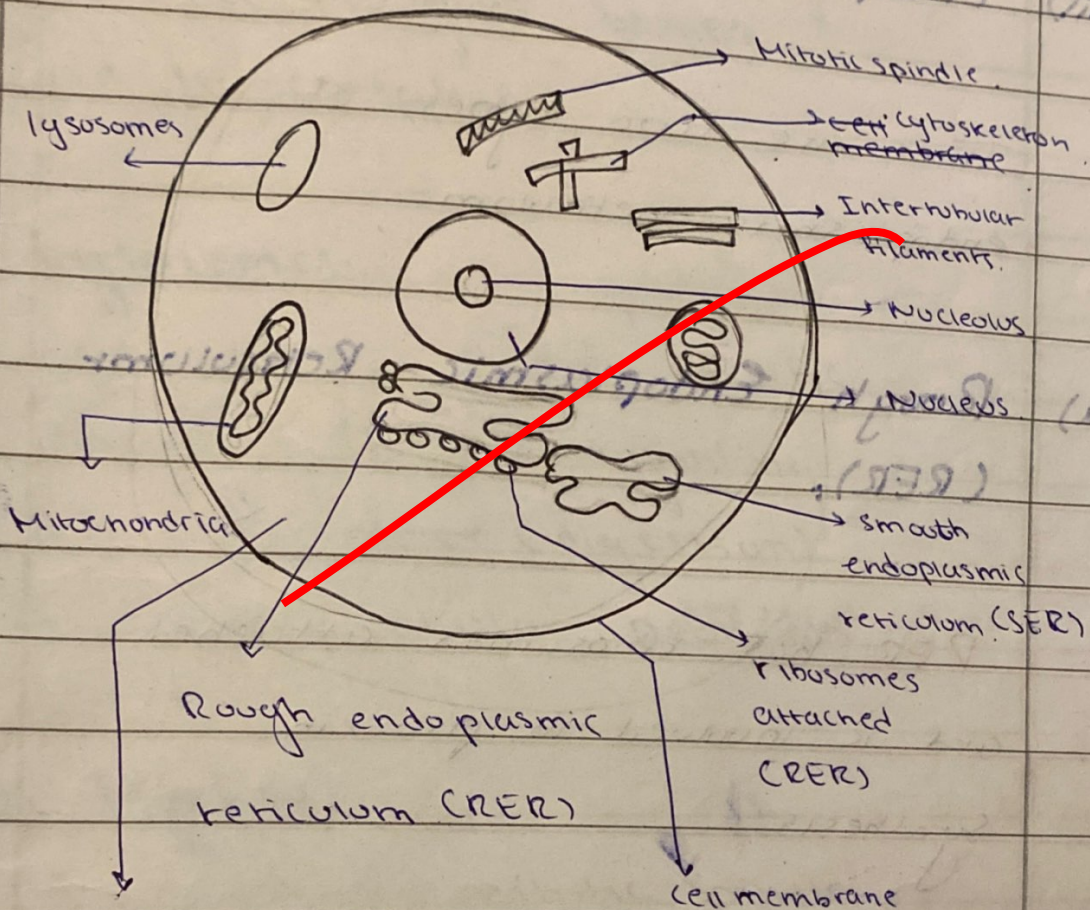 Mitotic spindle
lysosomes
cell cytoskeleton
membrane
Intertubular
filaments.
Nucleolus
Nucleus
Mitochondria
smooth
endoplasmic
reticulum (SER)
ribosomes
attached
(RER)
Rough endoplasmic
reticulum (RER)
cell membrane